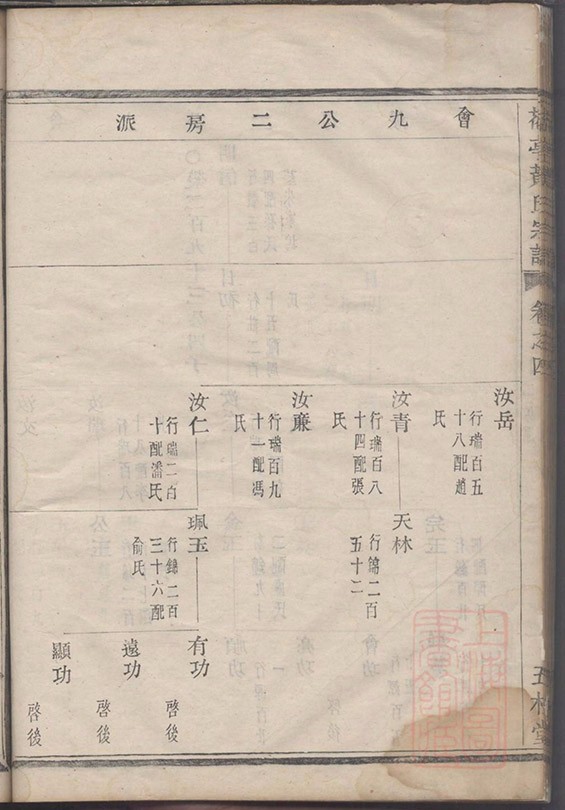 會九公二房派
氏宗譜
卷之四
汝岳
行瑞百五
十八配趙
氏
汝青
行瑞百八
十四配張
氏
天林
行錦二百
五十二
汝廉
行瑞百九
十一配馮
氏
汝仁
行瑞二百
十配潘氏
珮玉
行錦二百
三十六配
俞氏
有功
啓後
遠功
啓後
顯功
啓後
五桂堂